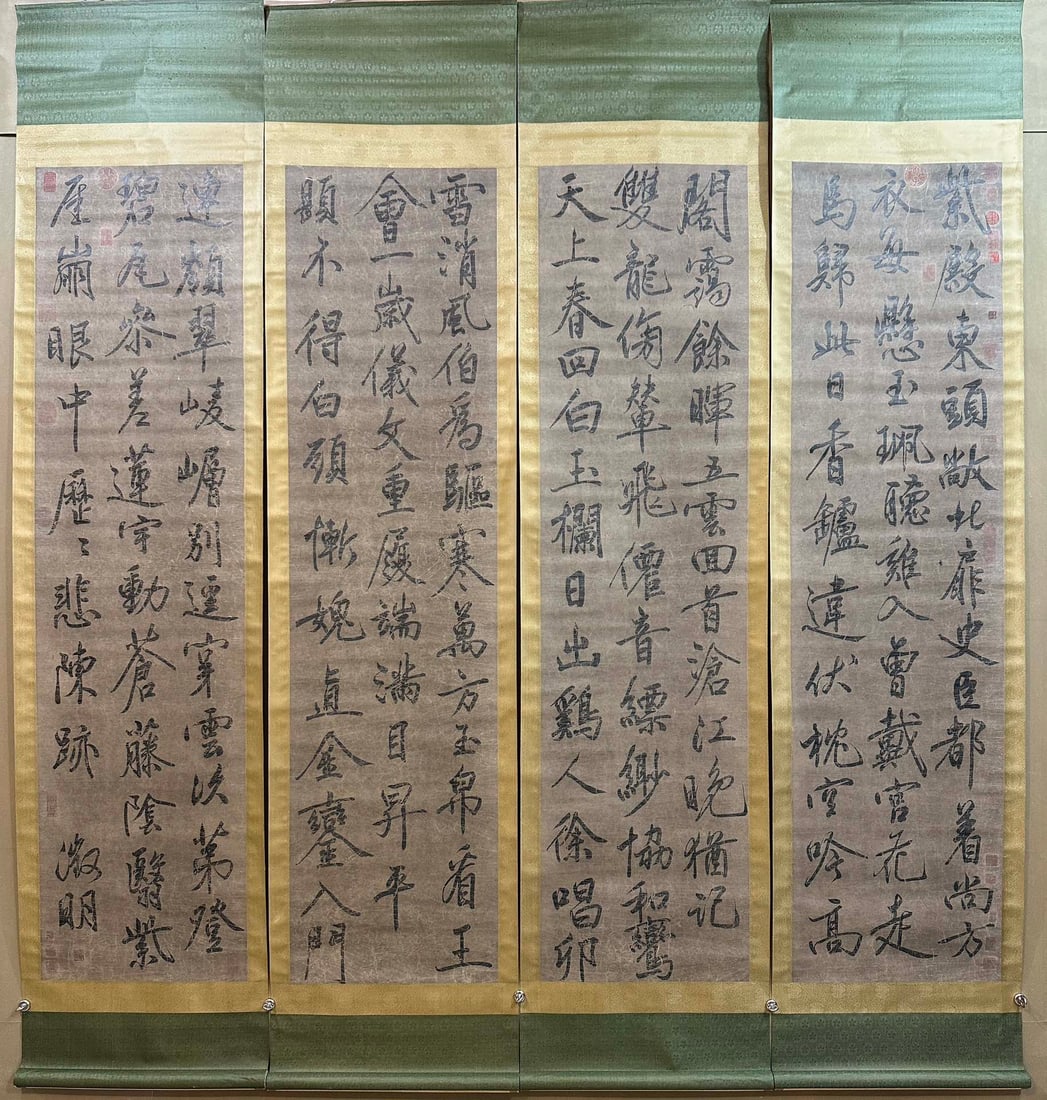 紫殿東頭敞北扉史臣都着尚方
衣每懸玉珮聽雞入曾戴宮花走
馬歸此日香鑪違伏枕空吟高
閣靄餘暉五雲回首滄江晚猶記
雙龍傍輦飛僊音縹緲協和鸞
天上春回白玉欄日出鷄人徐唱卯
雪消風伯爲驅寒萬方玉帛看王
會一歲儀文重履端滿目昇平
題不得白頭慚媿直金鑾入門
連翠崚嶒別逕穿雲次第登
碧瓦參差蓮宇動蒼藤陰翳紫
厓崩眼中歷〻悲陳跡 徵明